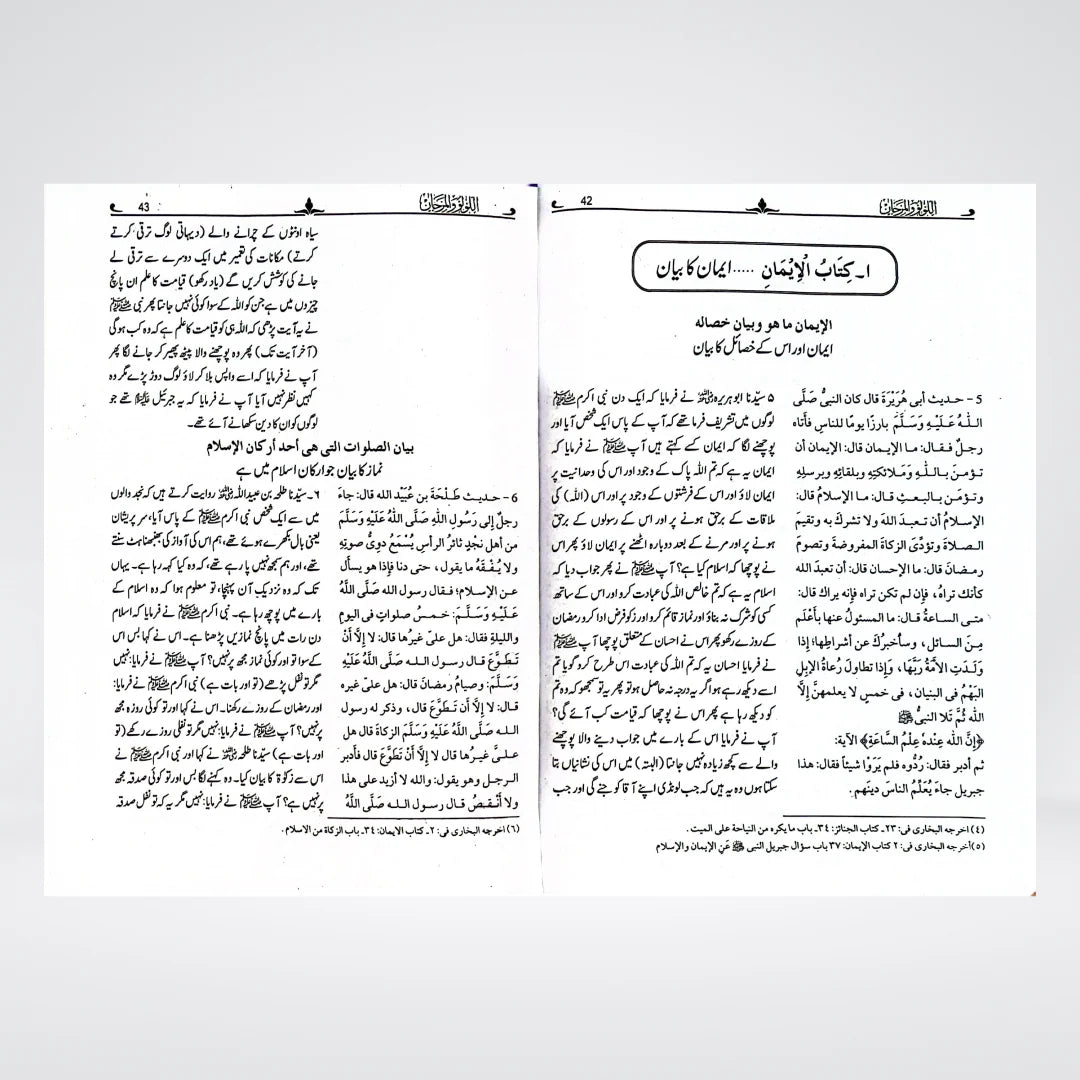 اللؤلؤ والمرجان
42
۱۔ كِتَابُ الْإِيْمَانِ ..... ایمان کا بیان
الإيمان ما هو وبيان خصاله
ایمان اور اس کے خصائل کا بیان
5 - حديث أبي هُرَيْرَةَ قال كان النبىُّ صَلَّى
اللهُ عَلَيْهِ وَسَلَّمَ بارزًا يومًا للناس فأتاه
رجلٌ فقال: ما الإيمان قال: الإيمان أن
تؤمنَ بالله وَمَلائكتِهِ وبلقائِهِ وبرسلِهِ
وتؤمنَ بالبعثِ قال: ما الإسلامُ قال:
الإسلامُ أن تعبدَ الله ولا تشركَ به وتقيمَ
الصلاةَ وتؤدِّىَ الزكاةَ المفروضةَ وتصومَ
رمضانَ قال: ما الإحسان قال: أن تعبدَ الله
كأنك تراهُ، فإن لم تكن تراه فإنه يراك قال:
متى الساعةُ قال: ما المسئول عنها بأَعْلَمَ
مِنَ السائل، وسأخبركَ عن أشراطِها؛ إذا
وَلَدَتِ الأَمَةُ رَبَّهَا، وَإِذا تطاولَ رُعاةُ الإبِلِ
البَهْمُ فى البنيان، فى خمسٍ لا يعلمهنَّ إلَّا
الله ثُمَّ تَلا النبىُّ ﷺ
﴿إِنَّ اللهَ عِنْدَهُ عِلْمُ السَّاعَةِ﴾ الآية:
ثم أدبر فقال: رُدُّوه فلم يَرَوْا شيئاً فقال: هذا
جبريل جاءَ يُعَلِّمُ الناسَ دينَهم.
۵ سیّدنا ابوہریرہ رضی اللہ عنہ نے فرمایا کہ ایک دن نبی اکرم ﷺ
لوگوں میں تشریف فرما تھے کہ آپ کے پاس ایک شخص آیا اور
پوچھنے لگا کہ ایمان کسے کہتے ہیں آپ ﷺ نے فرمایا کہ
ایمان یہ ہے کہ تم اللہ پاک کے وجود اور اس کی وحدانیت پر
ایمان لاؤ اور اس کے فرشتوں کے وجود پر اور اس (اللہ) کی
ملاقات کے برحق ہونے پر اور اس کے رسولوں کے برحق
ہونے پر اور مرنے کے بعد دوبارہ اٹھنے پر ایمان لاؤ پھر اس
نے پوچھا کہ اسلام کیا ہے؟ آپ ﷺ نے پھر جواب دیا کہ
اسلام یہ ہے کہ تم خالص اللہ کی عبادت کرو اور اس کے ساتھ
کسی کو شرک نہ بناؤ اور نماز قائم کرو اور زکوٰۃ فرض ادا کرو اور رمضان
کے روزے رکھو پھر اس نے احسان کے متعلق پوچھا آپ ﷺ
نے فرمایا احسان یہ کہ تم اللہ کی عبادت اس طرح کرو گویا تم
اسے دیکھ رہے ہو اگر یہ درجہ نہ حاصل ہو تو پھر یہ تو سمجھو کہ وہ تم
کو دیکھ رہا ہے پھر اس نے پوچھا کہ قیامت کب آئے گی؟
آپ نے فرمایا اس کے بارے میں جواب دینے والا پوچھنے
والے سے کچھ زیادہ نہیں جانتا (البتہ) میں اس کی نشانیاں بتا
سکتا ہوں وہ یہ ہیں کہ جب لونڈی اپنے آقا کو جنے گی اور جب
(٤) اخرجه البخارى فى: ٢٣- كتاب الجنائز: ٣٤- باب ما يكره من النياحة على الميت.
(٥) أخرجه البخارى فى: ٢ كتاب الإيمان: ٣٧ باب سؤال جبريل النبى ﷺ عَنِ الإيمان والإسلام
اللؤلؤ والمرجان
43
سیاہ اونٹوں کے چرانے والے (دیہاتی لوگ ترقی کرتے
کرتے) مکانات کی تعمیر میں ایک دوسرے سے ترقی لے
جانے کی کوشش کریں گے (یاد رکھو) قیامت کا علم ان پانچ
چیزوں میں ہے جن کو اللہ کے سوا کوئی نہیں جانتا پھر نبی ﷺ
نے یہ آیت پڑھی کہ اللہ ہی کو قیامت کا علم ہے کہ وہ کب ہوگی
(آخر آیت تک) پھر وہ پوچھنے والا پیٹھ پھیر کر جانے لگا پھر
آپ نے فرمایا کہ اسے واپس بلا کر لاؤ لوگ دوڑ پڑے مگر وہ
کہیں نظر نہیں آیا آپ نے فرمایا کہ یہ جبرئیل علیہ السلام تھے جو
لوگوں کو ان کا دین سکھانے آئے تھے۔
بيان الصلوات التى هى أحد أركان الإسلام
نماز کا بیان جو ارکان اسلام میں ہے
6 - حديث طَلْحَةَ بن عُبَيْد الله قال: جاءَ
رجلٌ إلى رَسُولِ اللهِ صَلَّى اللهُ عَلَيْهِ وَسَلَّمَ
من أهل نجْدٍ ثائرُ الرأسِ يُسْمَعُ دوىُّ صوتِهِ
ولا يُفْقَهُ ما يقول، حتى دنا فإذا هو يسأل
عن الإسلام؛ فقال رسول الله صَلَّى اللهُ
عَلَيْهِ وَسَلَّمَ: خمسُ صلواتٍ فى اليومِ
والليلةِ فقال: هل علىَّ غيرُها قال: لا إلَّا أَنْ
تَطَوَّعَ قال رسول الله صَلَّى اللهُ عَلَيْهِ
وَسَلَّمَ: وصيامُ رمضانَ قال: هل علىَّ غيره
قال: لا إلَّا أن تَطَوَّعَ قال، وذكر له رسول
الله صَلَّى اللهُ عَلَيْهِ وَسَلَّمَ الزكاةَ قال هل
علىَّ غيرُها قال لا إلَّا أَنْ تَطَوَّعَ قال فأدبر
الرجل وهو يقول: والله لا أزيد على هذا
ولا أنْقصُ قال رسول الله صَلَّى اللهُ
۶۔ سیّدنا طلحہ بن عبیداللہ رضی اللہ عنہ روایت کرتے ہیں کہ نجد والوں
میں سے ایک شخص نبی اکرم ﷺ کے پاس آیا، سر پریشان
یعنی بال بکھرے ہوئے تھے، ہم اس کی آواز کی بھنبھناہٹ سنتے
تھے، اور ہم سمجھ نہیں پا رہے تھے، کہ وہ کیا کہہ رہا ہے۔ یہاں
تک کہ وہ نزدیک آن پہنچا، تو معلوم ہوا کہ وہ اسلام کے
بارے میں پوچھ رہا ہے۔ نبی اکرم ﷺ نے فرمایا کہ اسلام
دن رات میں پانچ نمازیں پڑھنا ہے۔ اس نے کہا بس اس
کے سوا تو اور کوئی نماز مجھ پر نہیں؟ آپ ﷺ نے فرمایا: نہیں
مگر تو نفل پڑھے (تو اور بات ہے) نبی اکرم ﷺ نے فرمایا:
اور رمضان کے روزے رکھنا۔ اس نے کہا اور تو کوئی روزہ مجھ
پر نہیں؟ آپ ﷺ نے فرمایا: نہیں مگر تو نفلی روزے رکھے (تو
اور بات ہے) سیّدنا طلحہ رضی اللہ عنہ نے کہا اور نبی اکرم ﷺ نے
اس سے زکوٰۃ کا بیان کیا۔ وہ کہنے لگا بس اور تو کوئی صدقہ مجھ
پر نہیں ہے؟ آپ ﷺ نے فرمایا: نہیں مگر یہ کہ تو نفل صدقہ
(٦) اخرجه البخارى فى: ٢- كتاب الايمان: ٣٤- باب الزكاة من الاسلام.